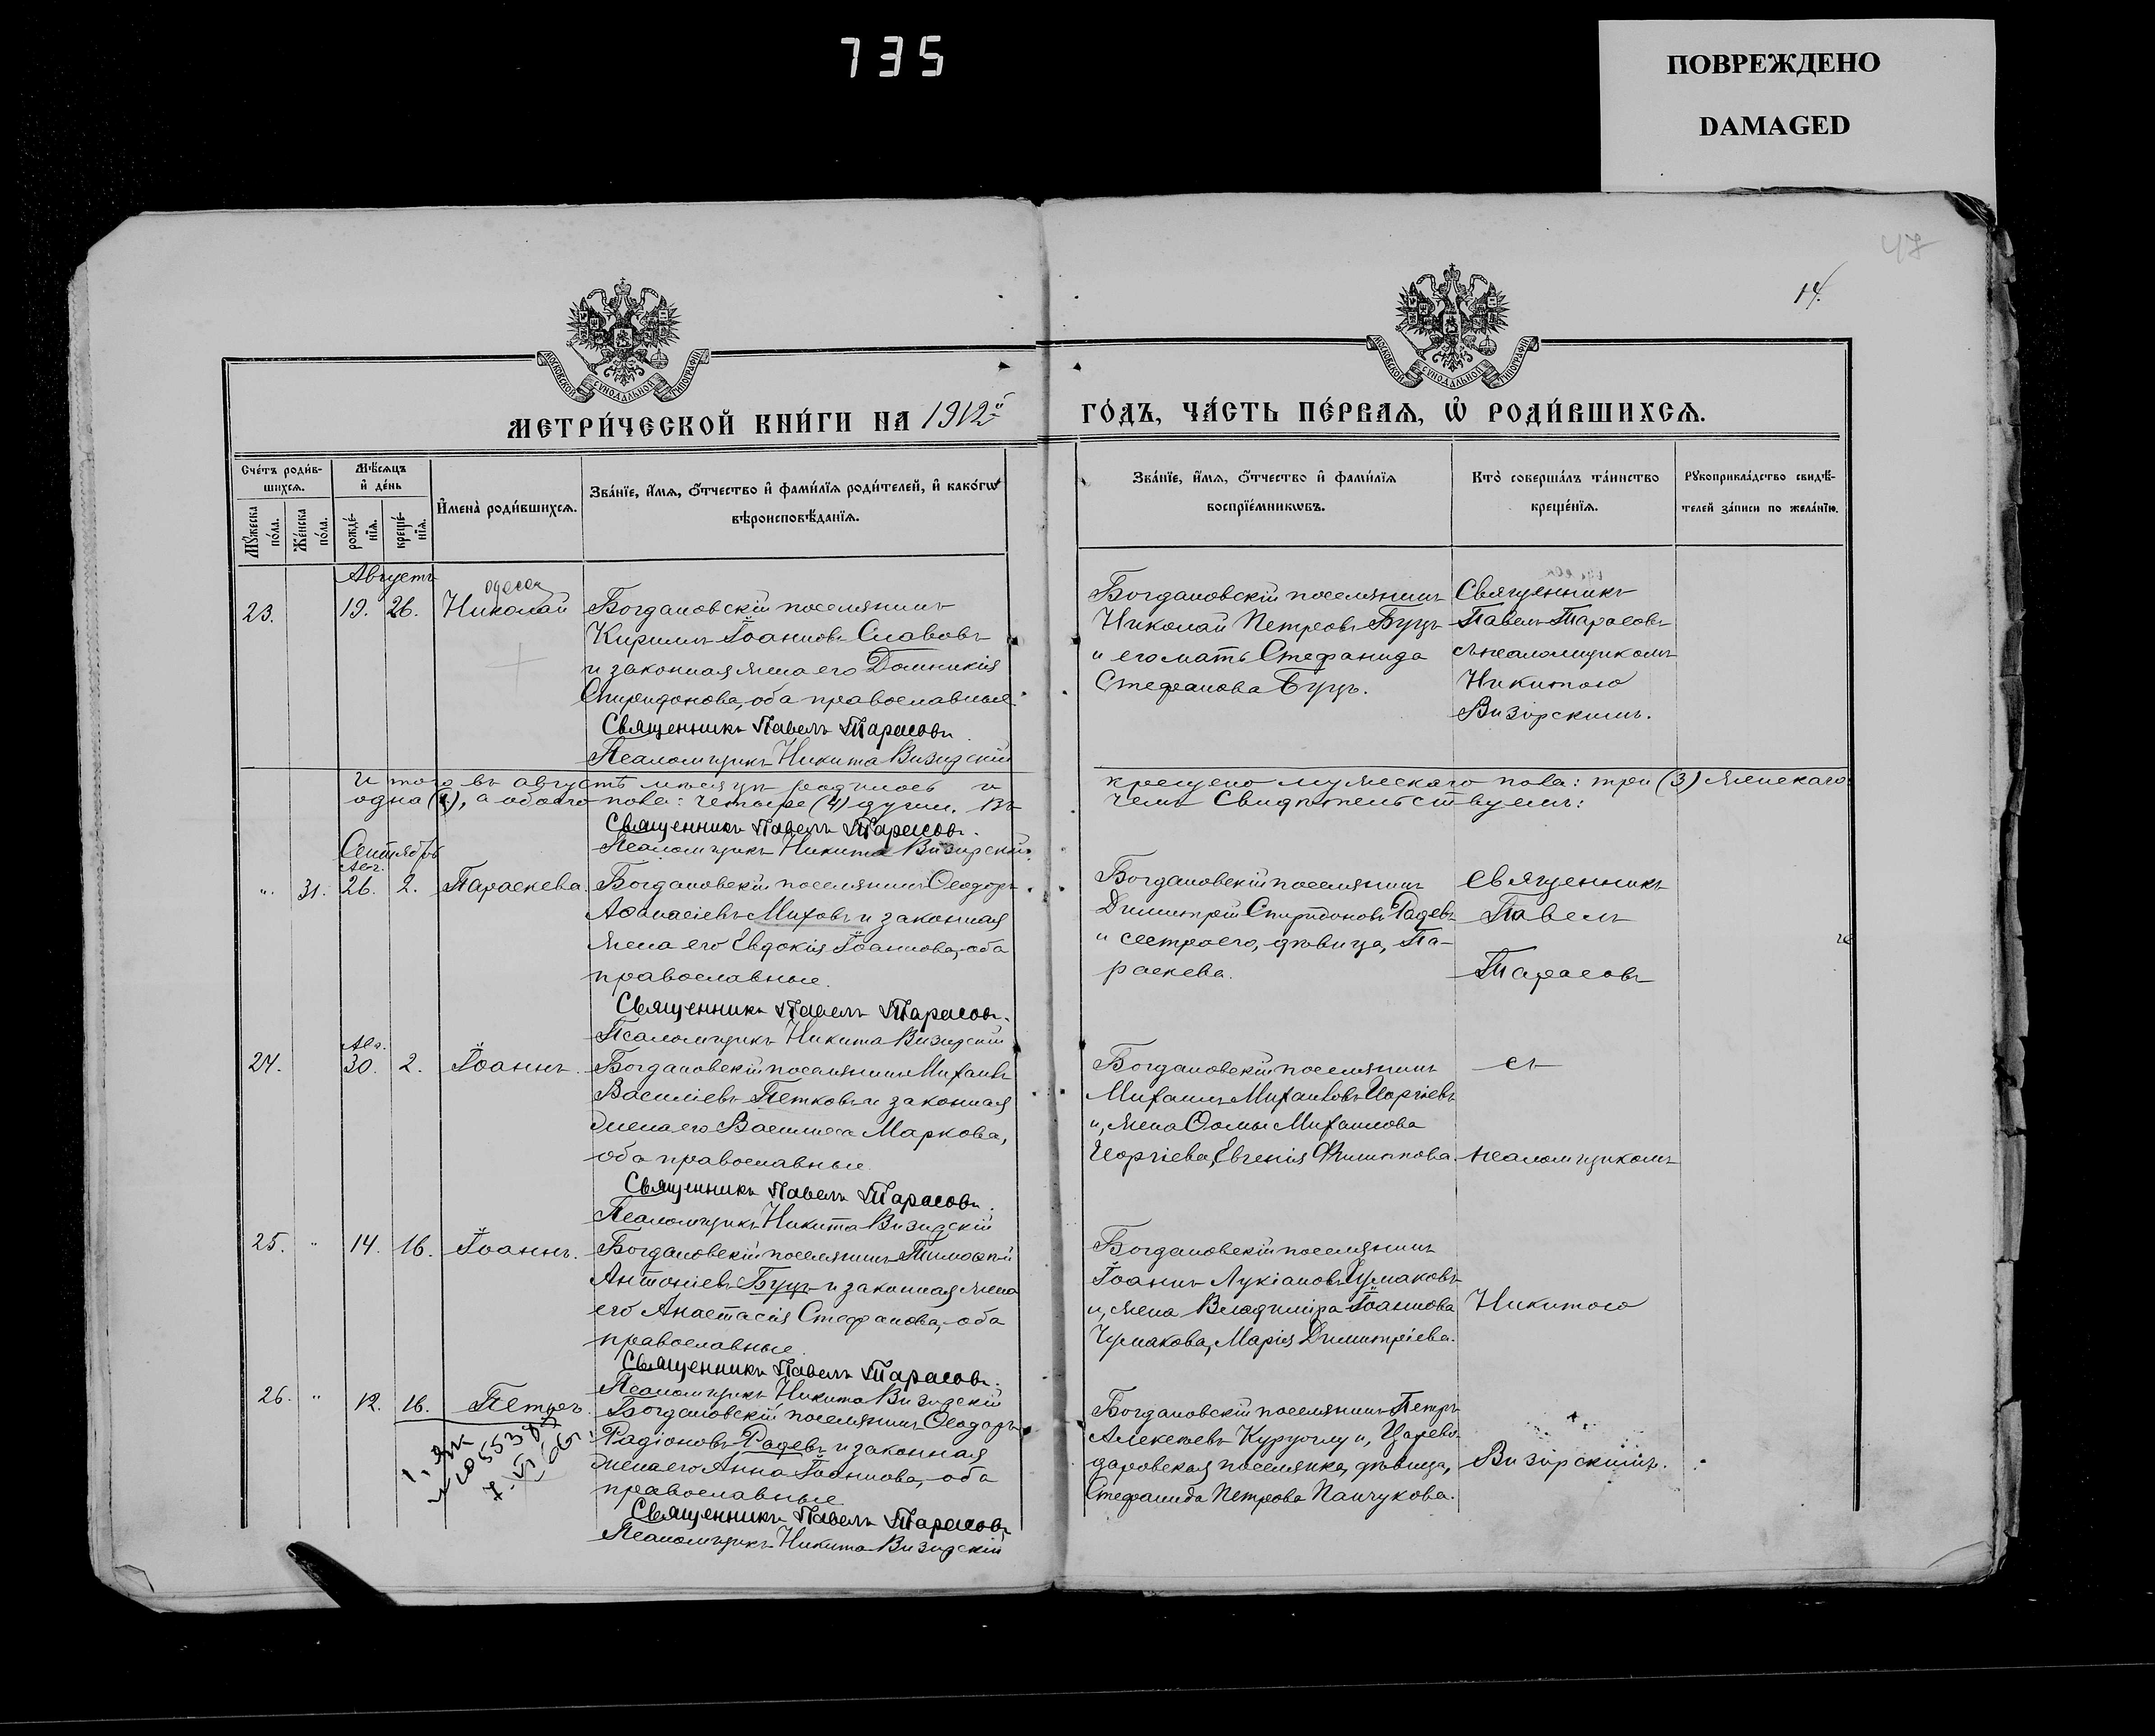 735
ПОВРЕЖДЕНО
DAMAGED
47
14.
МОСКОВСКОЙ СѴНОДАЛЬНОЙ ТИПОГРАФІИ
МОСКОВСКОЙ СѴНОДАЛЬНОЙ ТИПОГРАФІИ
МЕТРИ́ЧЕСКОЙ КНИ́ГИ НА 1912й
ГО́ДЪ, ЧА́СТЬ ПЕ́РВАЯ, Ѡ҆ РОДИ́ВШИХСЯ.
Сче́тъ роди́в-
шихся.
Мꙋ́жеска по́ла.
Же́нска по́ла.
Мѣ́сяцъ
и҆ де́нь
рожде́-
нїя.
креще́-
нїя.
И҆мена̀ роди́вшихся.
Зва́нїе, и҆́мя, о҆́тчество и҆ фами́лїя роди́телей, и҆ како́гѡ
вѣроисповѣ́данїя.
Зва́нїе, и҆́мя, о҆́тчество и҆ фами́лїя
воспрїе́мникѡвъ.
Кто̀ соверша́лъ та́инство
креще́нїя.
Рꙋкоприкла́дство свидѣ́-
телей за́писи по жела́нїю.
Августъ
одесса
23. 19. 26. Николай
Богдановскій поселянинъ
Кириллъ Іоанновъ Славовъ
и законная жена его Домникія
Спиридонова, оба православные.
Священникъ Павелъ Тарасовъ.
Псаломщикъ Никита Визирскій
Богдановскій поселянинъ
Николай Петровъ Буцъ
и его мать Стефанида
Стефанова Буцъ.
Священникъ
Павелъ Тарасовъ
съ псаломщикомъ
Никитою
Визирскимъ.
Итого въ августѣ мѣсяцѣ родилось и
крещено мужескаго пола: три (3) женскаго:
одна (1), а обоего пола: четыре (4) души. Въ
чемъ Свидѣтельствуемъ:
Священникъ Павелъ Тарасовъ.
Псаломщикъ Никита Визирскій.
Сентябрь
Авг.
„ 31. 26. 2. Параскева.
Богдановскій поселянинъ Ѳеодоръ
Аѳанасіевъ Миховъ и законная
жена его Евдокія Іоаннова, оба
православные.
Священникъ Павелъ Тарасовъ.
Псаломщикъ Никита Визирскій
Богдановскій поселянинъ
Димитрій Спиридоновъ Радевъ
и сестра его, дѣвица, Па-
раскева.
Священникъ
Павелъ
Тарасовъ
Авг.
24. 30. 2. Іоаннъ.
Богдановскій поселянинъ Михаилъ
Василіевъ Петковъ и законная
жена его Василиса Маркова,
оба православные.
Священникъ Павелъ Тарасовъ.
Псаломщикъ Никита Визирскій
Богдановскій поселянинъ
Михаилъ Михаиловъ
и, жена Ѳомы Михаилова
Евгенія Филиппова.
съ
псаломщикомъ
25. „ 14. 16. Іоаннъ.
Богдановскій поселянинъ Тимоѳей
Антоніевъ Буцъ и законная жена
его Анастасія Стефанова, оба
православные.
Священникъ Павелъ Тарасовъ.
Псаломщикъ Никита Визирскій
Богдановскій поселянинъ
Іоаннъ Лукіановъ Чумаковъ
и, жена Владиміра Іоаннова
Чумакова, Марія Димитріева.
Никитою
26. „ 12. 16. Петръ.
Богдановскій поселянинъ Ѳеодоръ
Радіоновъ Радевъ и законная
жена его Анна Іоаннова, оба
православные.
Священникъ Павелъ Тарасовъ
Псаломщикъ Никита Визирскій
Богдановскій поселянинъ Петръ
Алексѣевъ Курдоглу и, Царево-
даровская поселянка, дѣвица,
Стефанида Петрова Панчукова.
Визирскимъ.